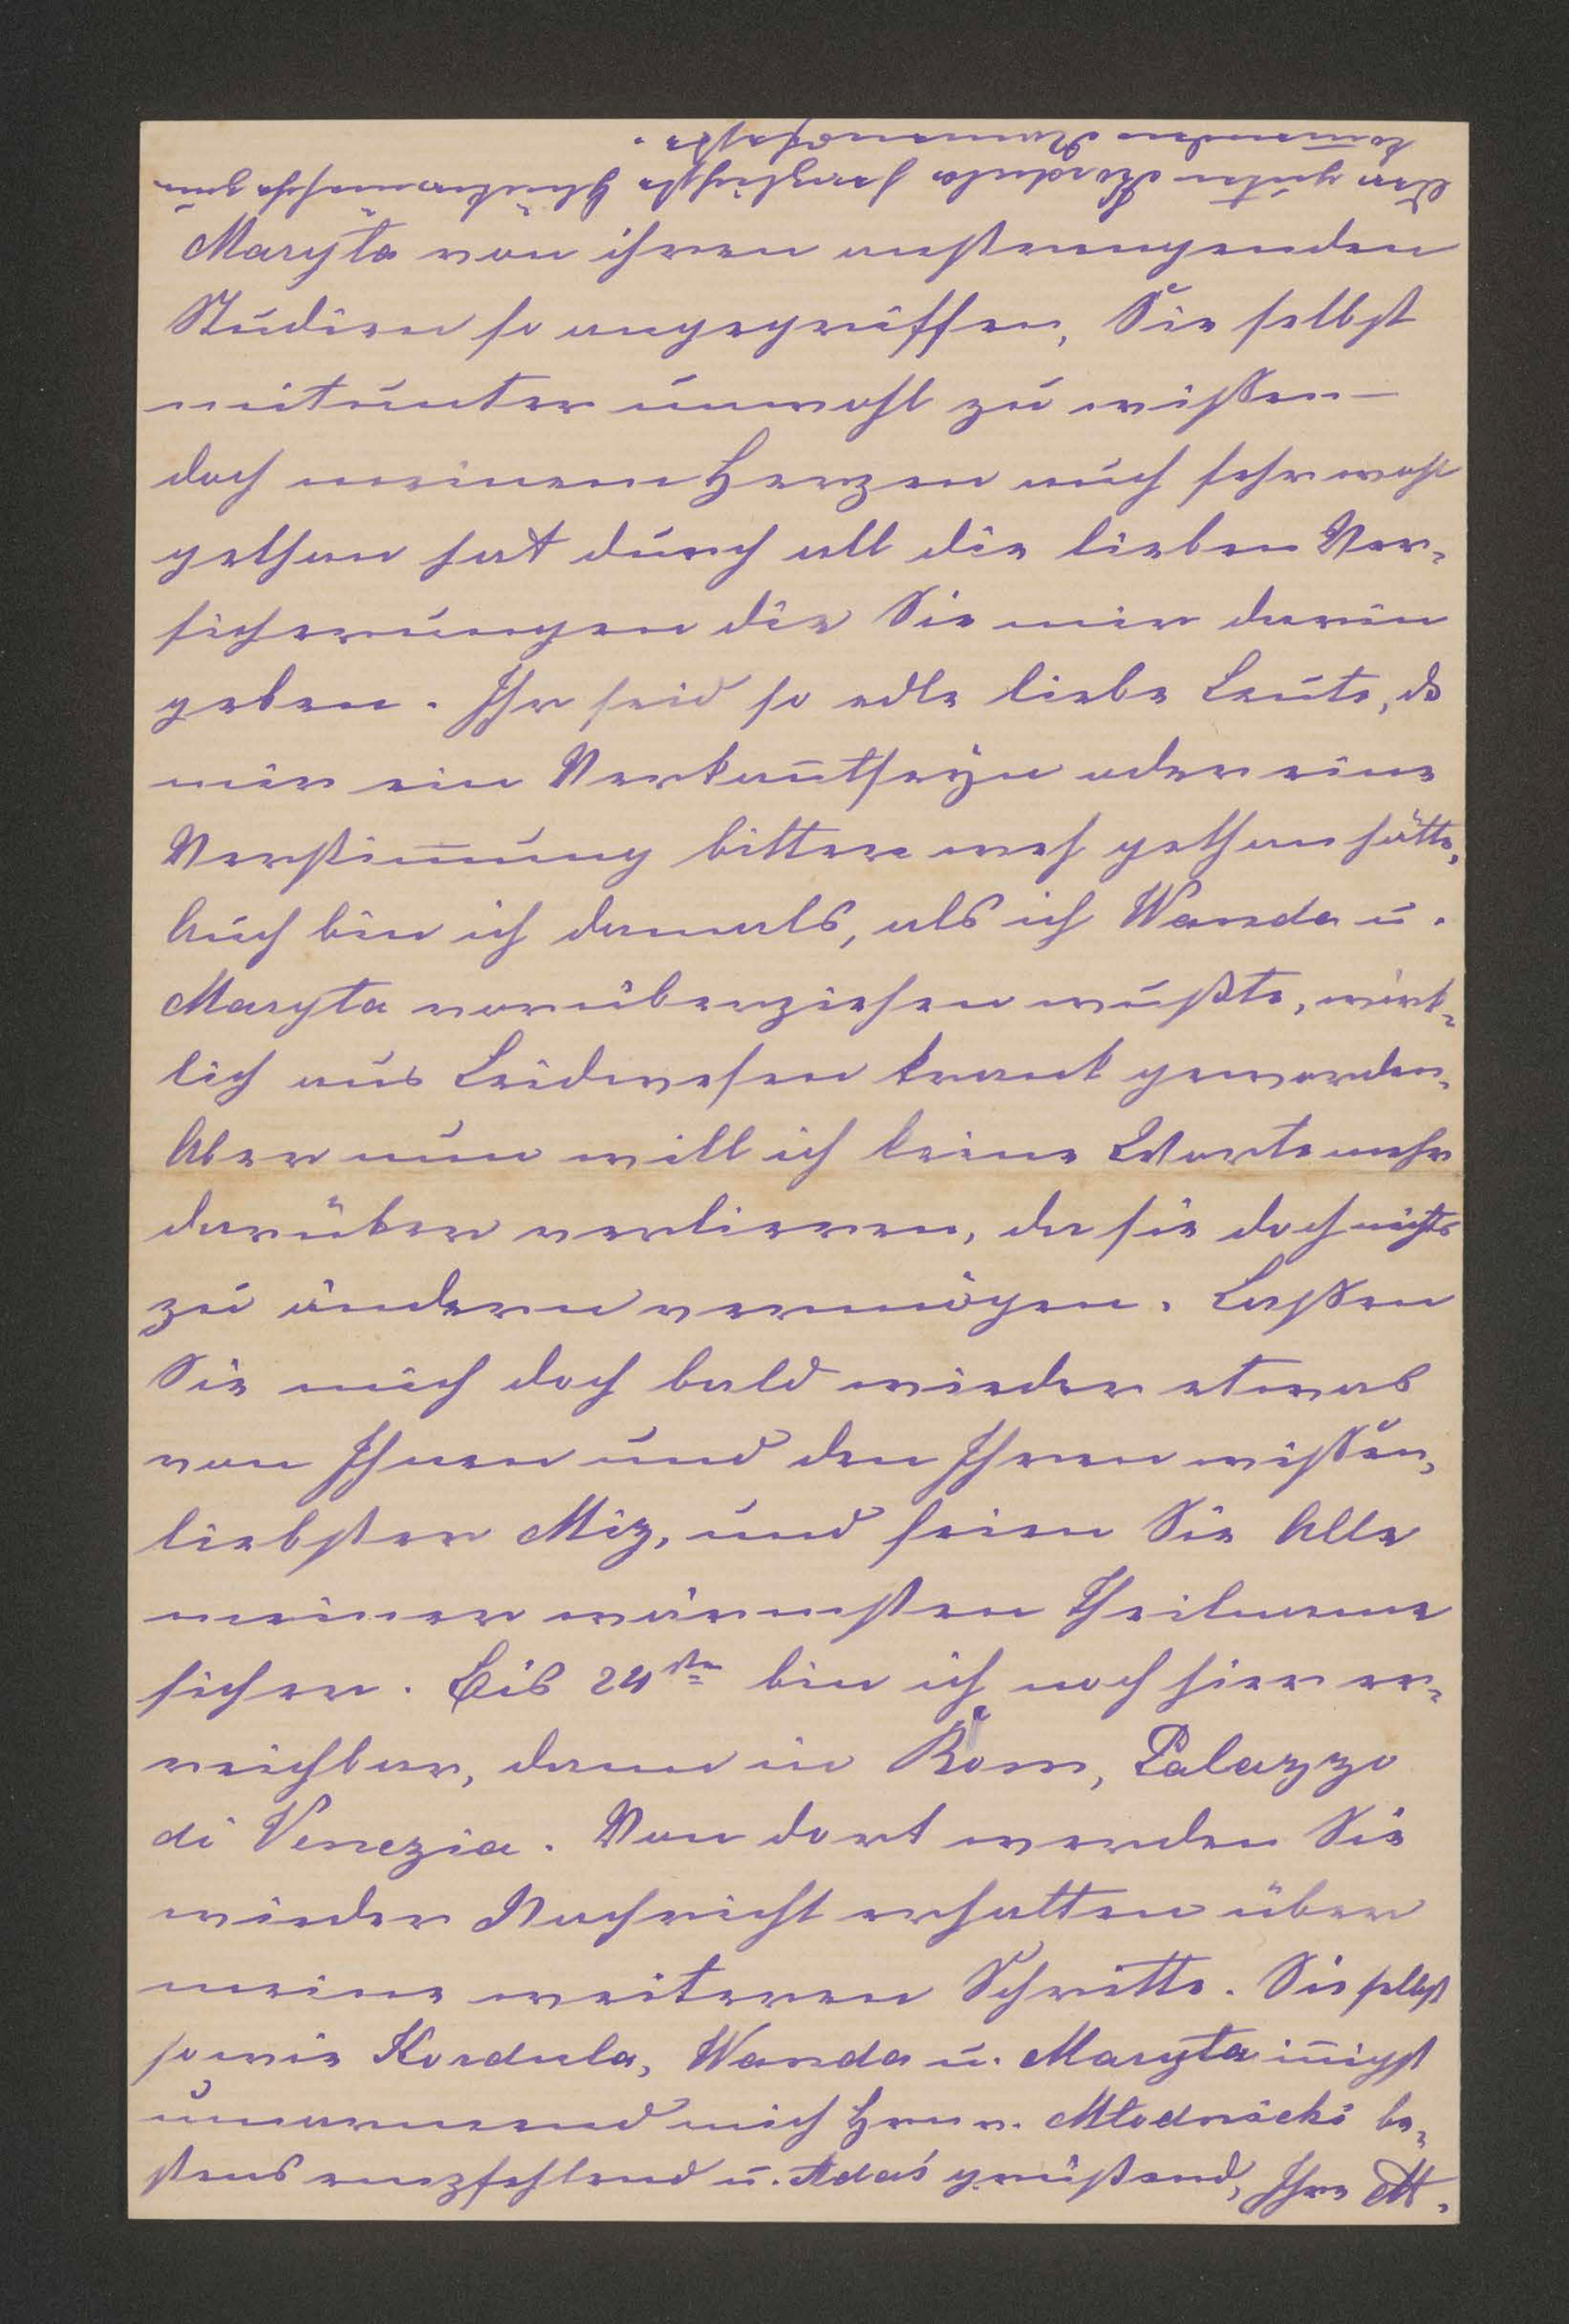 Maryta von ihren anstrengenden
Studien so angegriffen, Sie selbst
mitunter unwohl zu wißen –
doch meinem Herzen auch sehr wohl
gethan hat durch all die lieben Ver-
sicherungen die Sie mir darin
geben. Ihr seid so edle liebe Leute, ds
mir ein Verkan̄tseÿn oder eine
Verstim̄ung bitter weh gethan hätte.
Auch bin ich damals, als ich Wanda u.
Maryta vorüberziehen wußte, wirk-
lich aus Leidwesen krank geworden.
Aber nun will ich keine Worte mehr
darüber verlieren, da sie doch nichts
zu ändern vermögen. Laßen
Sie mich doch bald wieder etwas
von Ihnen und den Ihren wißen,
liebster Miz, und seien Sie Alle
meiner wärmsten Theilname
sicher. Bis 24sten bin ich noch hier er-
reichbar, dann in Rom, Palazzo
di Venezia. Von dort werden Sie
wieder Nachricht erhalten über
meine weiteren Schritte. Sie selbst
sowie Kordula, Wanda u. Maryta in̄igst
umarmend mich Hrn v. Młodnicki be-
stens empfehlend u. Adaś grüßend, Ihre M.
Der guten Kordula herzlichste Glückwünsche zum
kom̄enden Namensfeste.